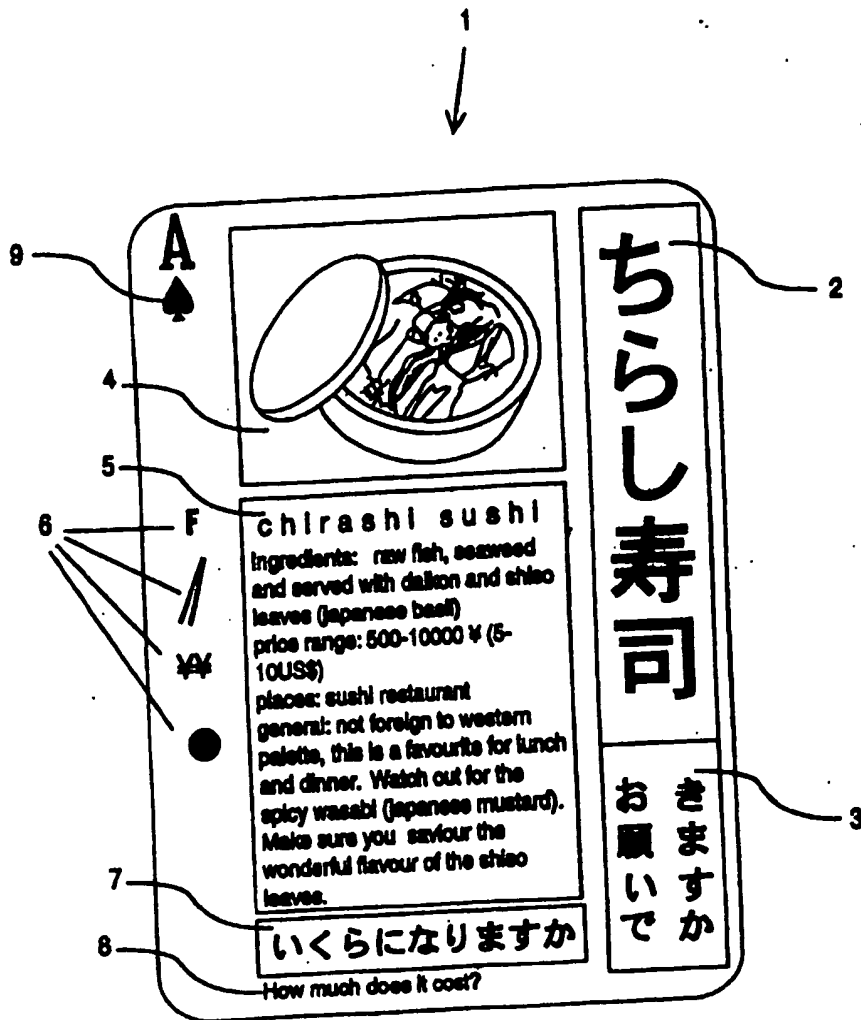 1
9
A
♠
4
5
6
F
¥¥
chirashi sushi
Ingredients: raw fish, seaweed
and served with daikon and shiso
leaves (japanese basil)
price range: 500-10000 ¥ (5-
10US$)
places: sushi restaurant
general: not foreign to western
palette, this is a favourite for lunch
and dinner. Watch out for the
spicy wasabi (japanese mustard).
Make sure you saviour the
wonderful flavour of the shiso
leaves.
7
いくらになりますか
8
How much does it cost?
ちらし寿司
2
お願いで
きますか
3